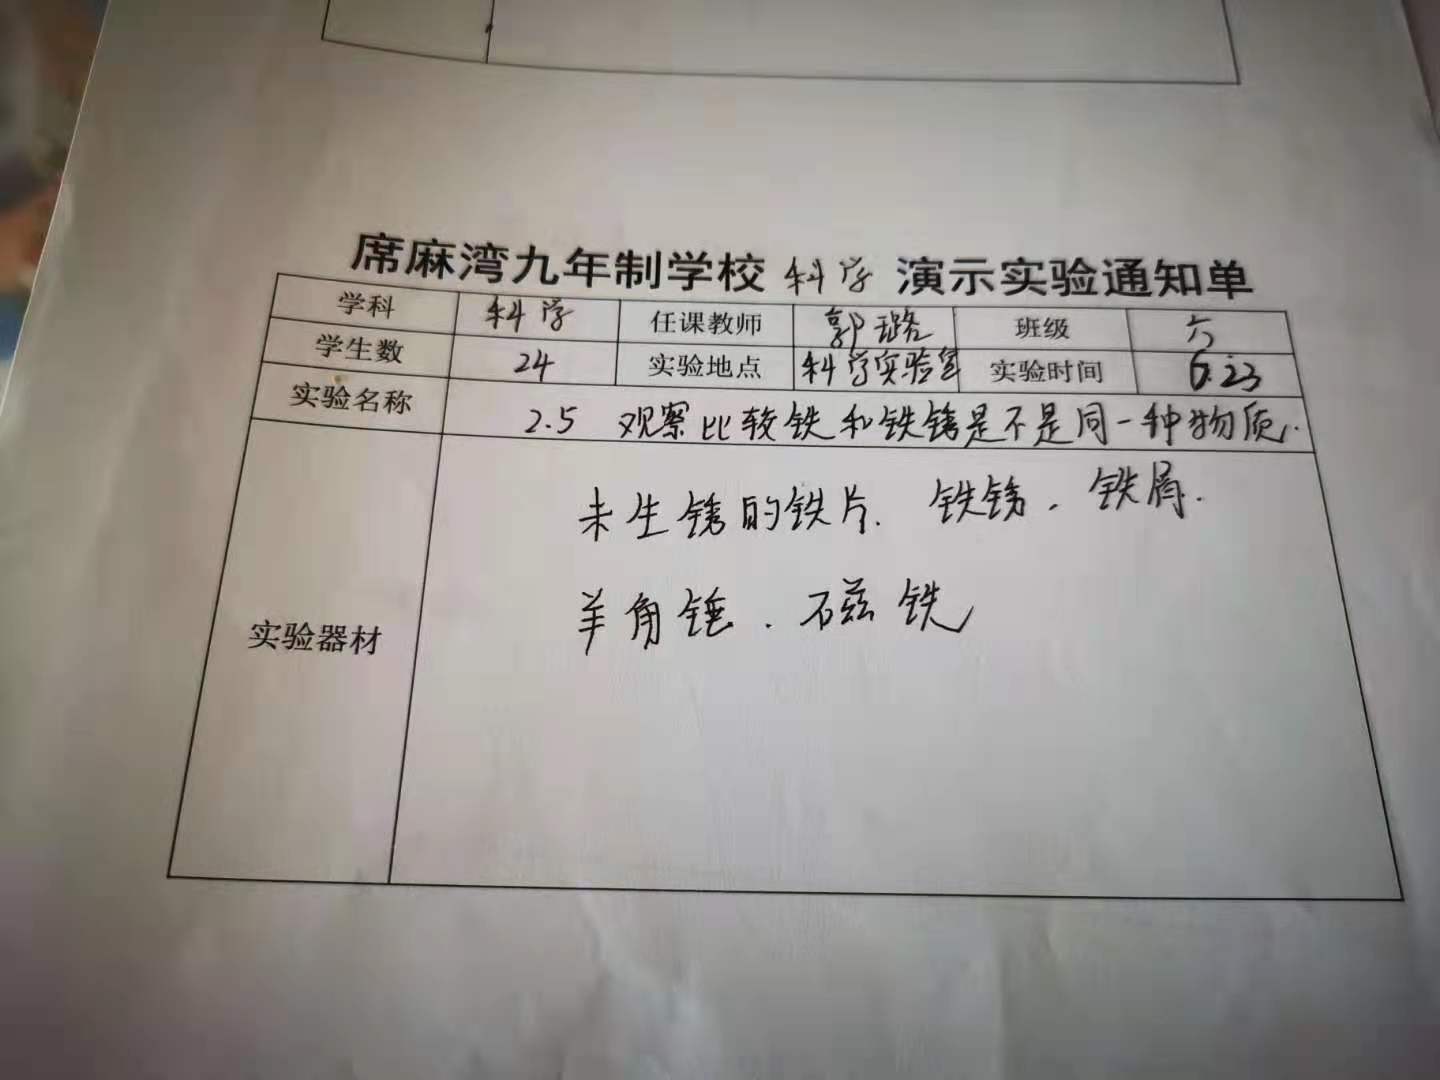 席麻湾九年制学校科学演示实验通知单
学科 科学 任课教师 郭璐 班级 六
学生数 24 实验地点 科学实验室 实验时间 6.23
实验名称 2.5 观察比较铁和铁锈是不是同一种物质.
未生锈的铁片、铁锈、铁屑、
实验器材 羊角锤、磁铁